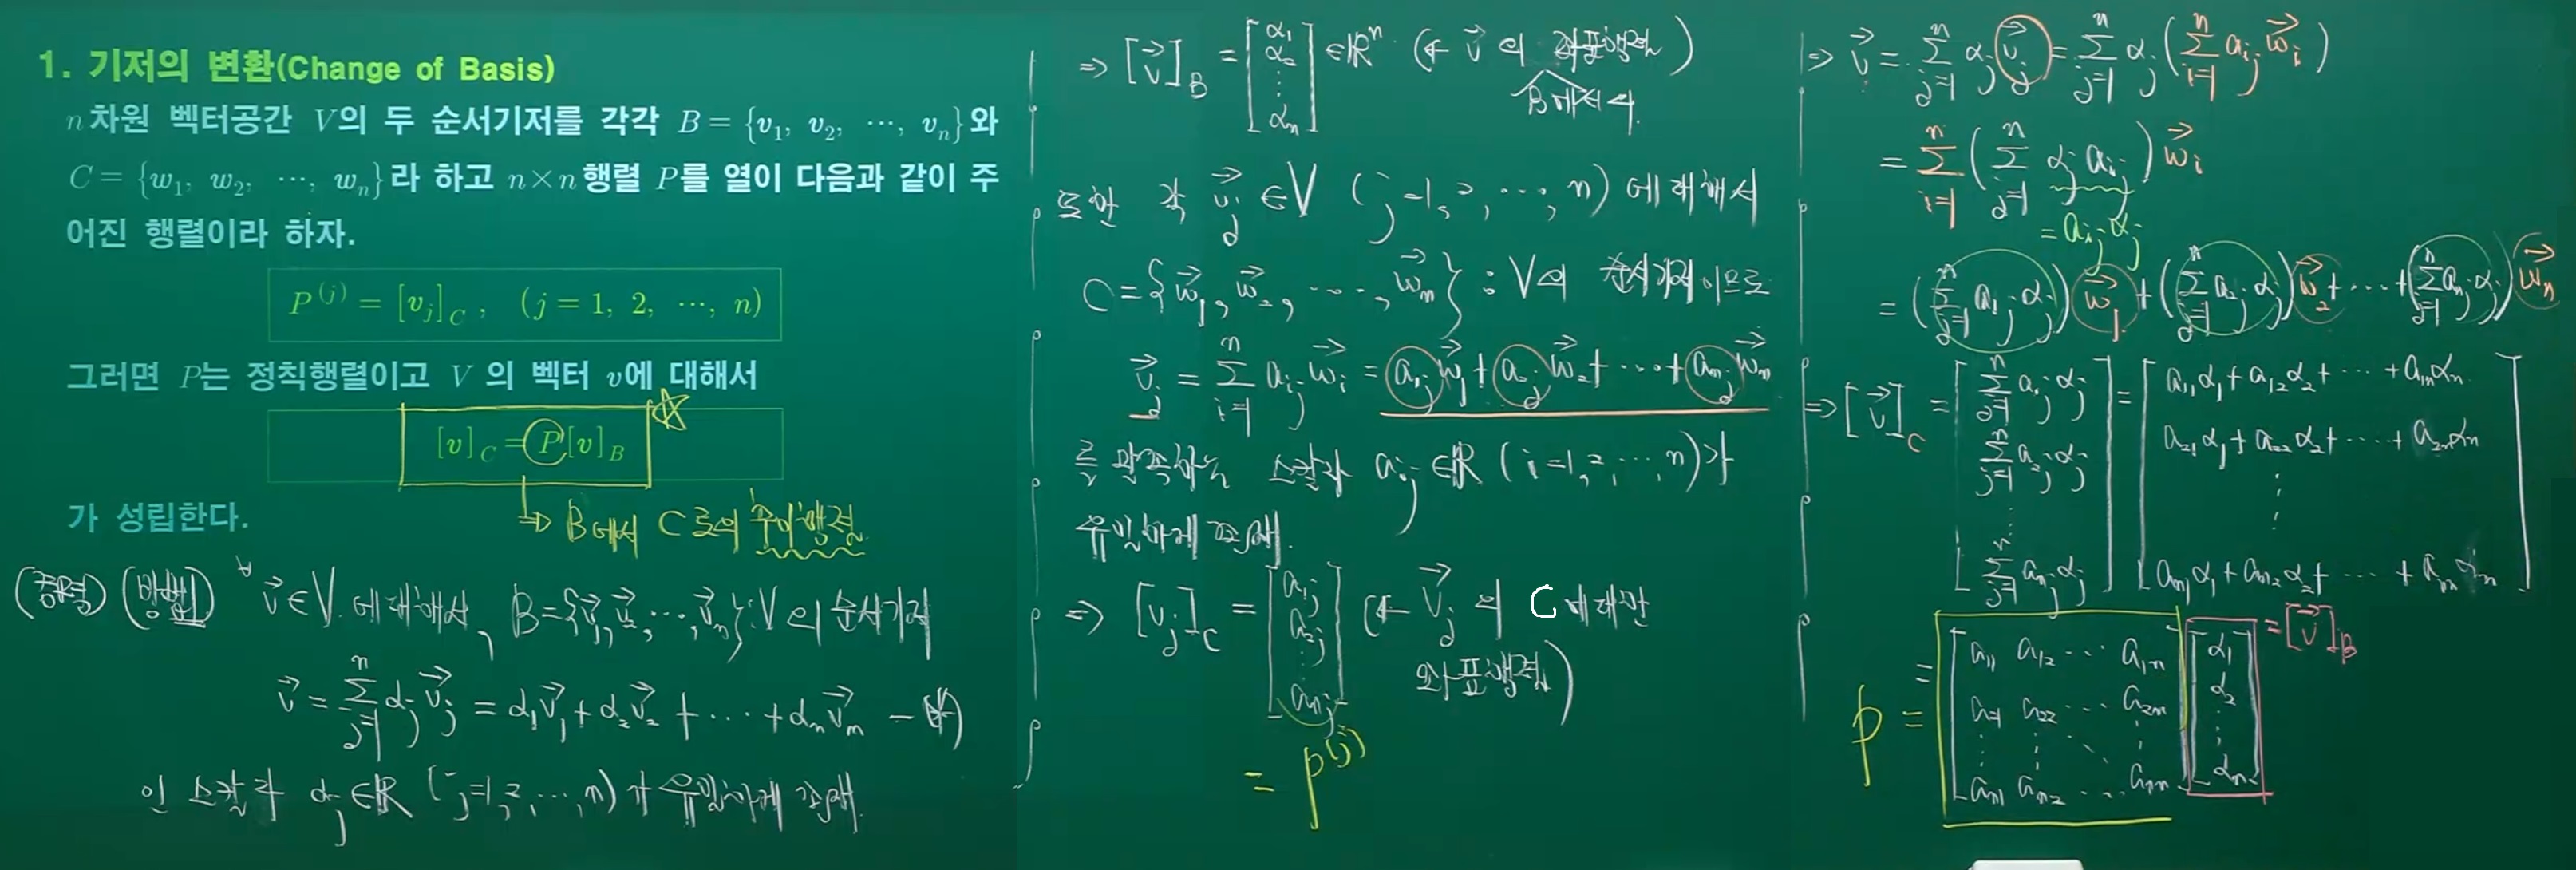 1. 기저의 변환(Change of Basis)
n차원 벡터공간 V의 두 순서기저를 각각 B = {v₁, v₂, ⋯, vₙ}와
C = {w₁, w₂, ⋯, wₙ}라 하고 n×n행렬 P를 열이 다음과 같이 주
어진 행렬이라 하자.
P⁽ʲ⁾ = [vⱼ]_C , (j = 1, 2, ⋯, n)
그러면 P는 정칙행렬이고 V 의 벡터 v에 대해서
[v]_C = P[v]_B ☆
가 성립한다.
⇒ B에서 C로의 추이행렬
(증명) (방법1) ∀v⃗∈V에 대해서, B={v⃗₁, v⃗₂, ⋯, v⃗ₙ} : V의 순서기저
v⃗ = Σ_{j=1}^{n} αⱼv⃗ⱼ = α₁v⃗₁ + α₂v⃗₂ + ⋯ + αₙv⃗ₙ − (*)
인 스칼라 αⱼ∈ℝ (j=1, 2, ⋯, n)가 유일하게 존재.
⇒ [v⃗]_B = [α₁ α₂ ⋮ αₙ] ∈ℝⁿ (← v⃗의 좌표행렬)
B에서의
또한 각 v⃗ⱼ∈V (j=1, 2, ⋯, n)에 대해서
C={w⃗₁, w⃗₂, ⋯, w⃗ₙ} : V의 순서기저이므로
v⃗ⱼ = Σ_{i=1}^{n} aᵢⱼw⃗ᵢ = a₁ⱼw⃗₁ + a₂ⱼw⃗₂ + ⋯ + aₙⱼw⃗ₙ
를 만족하는 스칼라 aᵢⱼ∈ℝ (i=1, 2, ⋯, n)가
유일하게 존재.
⇒ [vⱼ]_C = [a₁ⱼ a₂ⱼ ⋮ aₙⱼ] (← v⃗ⱼ의 C에 대한
좌표행렬)
= P⁽ʲ⁾
⇒ v⃗ = Σ_{j=1}^{n} αⱼv⃗ⱼ = Σ_{j=1}^{n} αⱼ(Σ_{i=1}^{n} aᵢⱼw⃗ᵢ)
= Σ_{i=1}^{n} (Σ_{j=1}^{n} αⱼaᵢⱼ) w⃗ᵢ
= aᵢⱼαⱼ
= (Σ_{j=1}^{n} a₁ⱼαⱼ)w⃗₁ + (Σ_{j=1}^{n} a₂ⱼαⱼ)w⃗₂ + ⋯ + (Σ_{j=1}^{n} aₙⱼαⱼ)w⃗ₙ
⇒ [v⃗]_C = [Σ_{j=1}^{n} a₁ⱼαⱼ
Σ_{j=1}^{n} a₂ⱼαⱼ
⋮
Σ_{j=1}^{n} aₙⱼαⱼ] = [a₁₁α₁ + a₁₂α₂ + ⋯ + a₁ₙαₙ
a₂₁α₁ + a₂₂α₂ + ⋯ + a₂ₙαₙ
⋮
aₙ₁α₁ + aₙ₂α₂ + ⋯ + aₙₙαₙ]
= [a₁₁ a₁₂ ⋯ a₁ₙ] [α₁] = [v⃗]_B
P = [a₂₁ a₂₂ ⋯ a₂ₙ] [α₂]
⋮ ⋮ ⋱ ⋮ ⋮
[aₙ₁ aₙ₂ ⋯ aₙₙ] [αₙ]